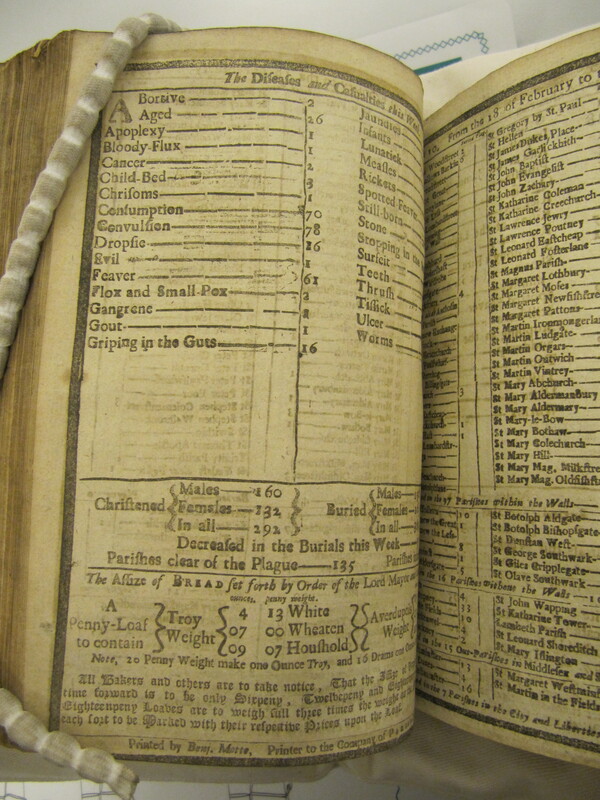 The Diseases and Casualties this Week
Abortive 2
Aged 26
Apoplexy 1
Bloody-Flux 1
Cancer 2
Child-Bed 3
Chrisoms 1
Consumption 70
Convulsion 78
Dropsie 16
Evil 1
Feaver 61
Flox and Small-Pox
Gangrene
Gout 1
Griping in the Guts 16
Jaundies
Infants
Lunatick
Measles
Rickets
Spotted Feaver
Still-born
Stone
Stopping in the
Surfeit
Teeth
Thrush
Tissick
Ulcer
Worms
Christened
Males 160
Females 132
In all 292
Buried
Males
Females
In all
Decreased in the Burials this Week
Parishes clear of the Plague 135 Parishes
The Assize of BREAD set forth by Order of the Lord Mayor and
ounces. penny weight.
A Penny-Loaf to contain
Troy Weight
4 13 White
07 00 Wheaten
09 07 Houshold
Averdupois Weight
Note, 20 Penny Weight make one Ounce Troy, and 16 Drams one
All Bakers and others are to take notice, That the
time forward is to be only Sixpeny, Twelvepeny and
Eighteenpeny Loaves are to weigh full three times the weight
each sort to be Marked with their respective Prices upon the Loaf.
Printed by Benj. Motte, Printer to the Company of
From the 18 of February to
St Gregory by St. Paul
St Hellen
St James Dukes Place
St James Garlickhith
St John Baptist
St John Evangelist
St John Zachary
St Katharine Coleman
St Katharine Creechurch
St Lawrence Jewry
St Lawrence Pountney
St Leonard Eastcheap
St Leonard Fosterlane
St Magnus Parish
St Margaret Lothbury
St Margaret Moses
St Margaret Newfishstre
St Margaret Pattons
St Martin Ironmongerla
St Martin Ludgate
St Martin Orgars
St Martin Outwich
St Martin Vintrey
St Mary Abchurch
St Mary Aldermanbury
St Mary Aldermary
St Mary-le-Bow
St Mary Bothaw
St Mary Colechurch
St Mary Hill
St Mary Mag, Milkstre
St Mary Mag. Oldfishst
the 97 Parishes within the Walls
St Botolph Aldgate
St Botolph Bishopsgate
St Dunstan West
St George Southwark
St Giles Cripplegate
St Olave Southwark
the 16 Parishes without the Walls
St John Wapping
St Katharine Tower
Lambeth Parish
St Leonard Shoreditch
St Mary Islington
the 15 Out-Parishes in Middlesex and
St Margaret Westminst
St Martin in the Fields
the 7 Parishes in the City and Liberties